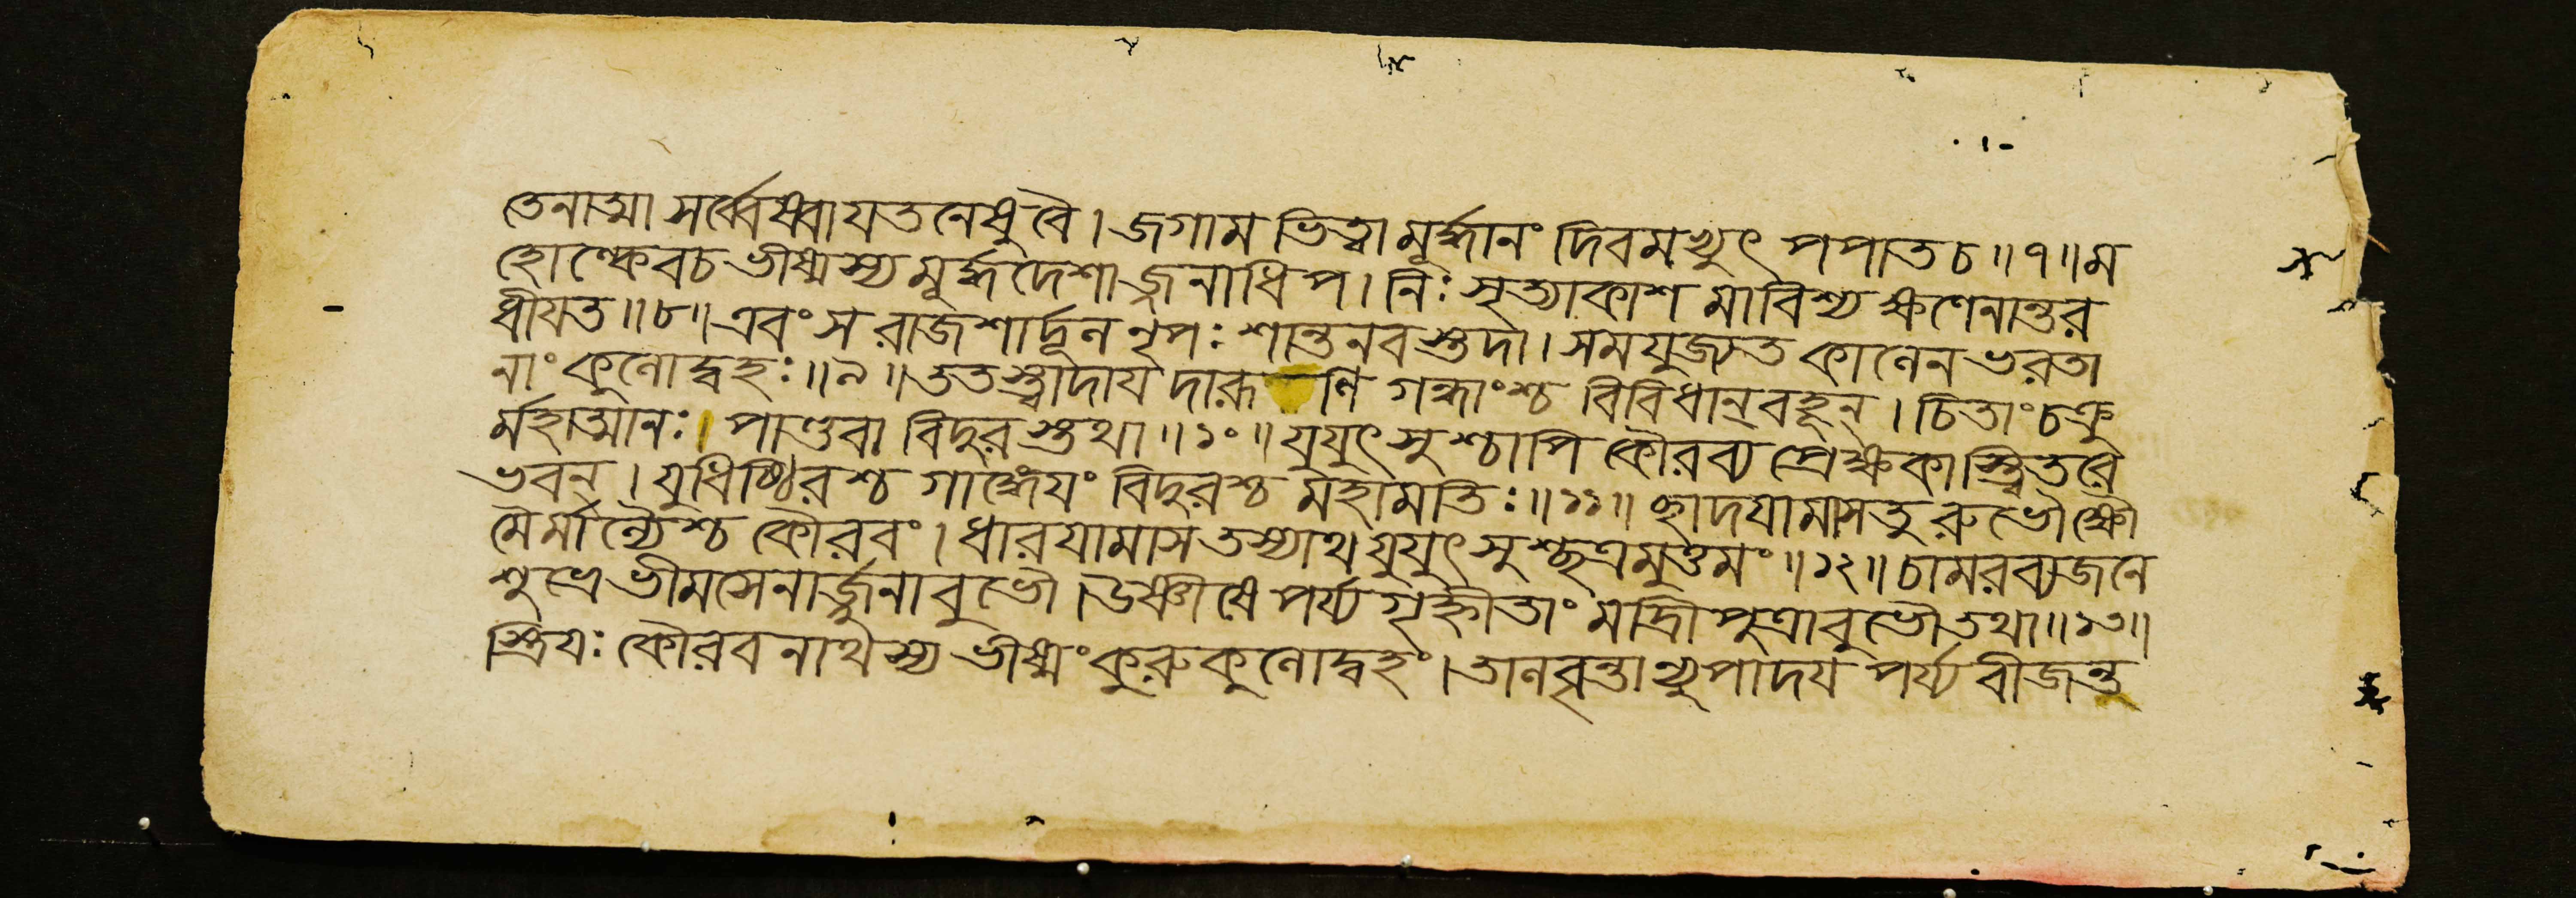 তেনাত্মা সর্ব্বেষ্বায়তনেষু বৈ। জগাম ভিত্ত্বা মূর্দ্ধানং দিবমখ্যুৎ পপাত চ॥৭॥ম
হোল্কেব চ ভীষ্মস্য মূর্দ্ধদেশাজ্জনাধিপ। নিঃসৃত্যাকাশমাবিশ্য ক্ষণেনান্তর
ধীয়ত॥৮॥এবং স রাজশার্দ্দূল নৃপঃ শান্তনবস্তদা। সমযুজ্যত কালেন ভরতা
নাং কুলোদ্বহঃ॥৯॥ততস্ত্বাদায় দারূণি গন্ধাংশ্চ বিবিধান্ বহূন্। চিতাং চক্রু
র্মহাত্মানঃ। পাণ্ডবা বিদুরস্তথা॥১০॥যুযুৎসুশ্চাপি কৌরব্য প্রেক্ষকাস্ত্বিতরে
ভবন্। যুধিষ্ঠিরশ্চ গাঙ্গেয়ং বিদুরশ্চ মহামতিঃ॥১১॥ছাদয়ামাসতুরুভৌ ক্ষৌ
মৈর্মাল্যৈশ্চ কৌরবং। ধারয়ামাস তস্যাথ যুযুৎসুশ্ছত্রমুত্তমং॥১২॥চামরব্যজনে
শুভ্রে ভীমসেনার্জ্জুনাবুভৌ। উষ্ণীষে পর্য্যগৃহ্নীতাং মাদ্রীপুত্রাবুভৌ তথা॥১৩॥
স্ত্রিয়ঃ কৌরবনাথস্য ভীষ্মং কুরুকুলোদ্বহং। তালবৃন্তান্যুপাদয় পর্য্যবীজন্ত